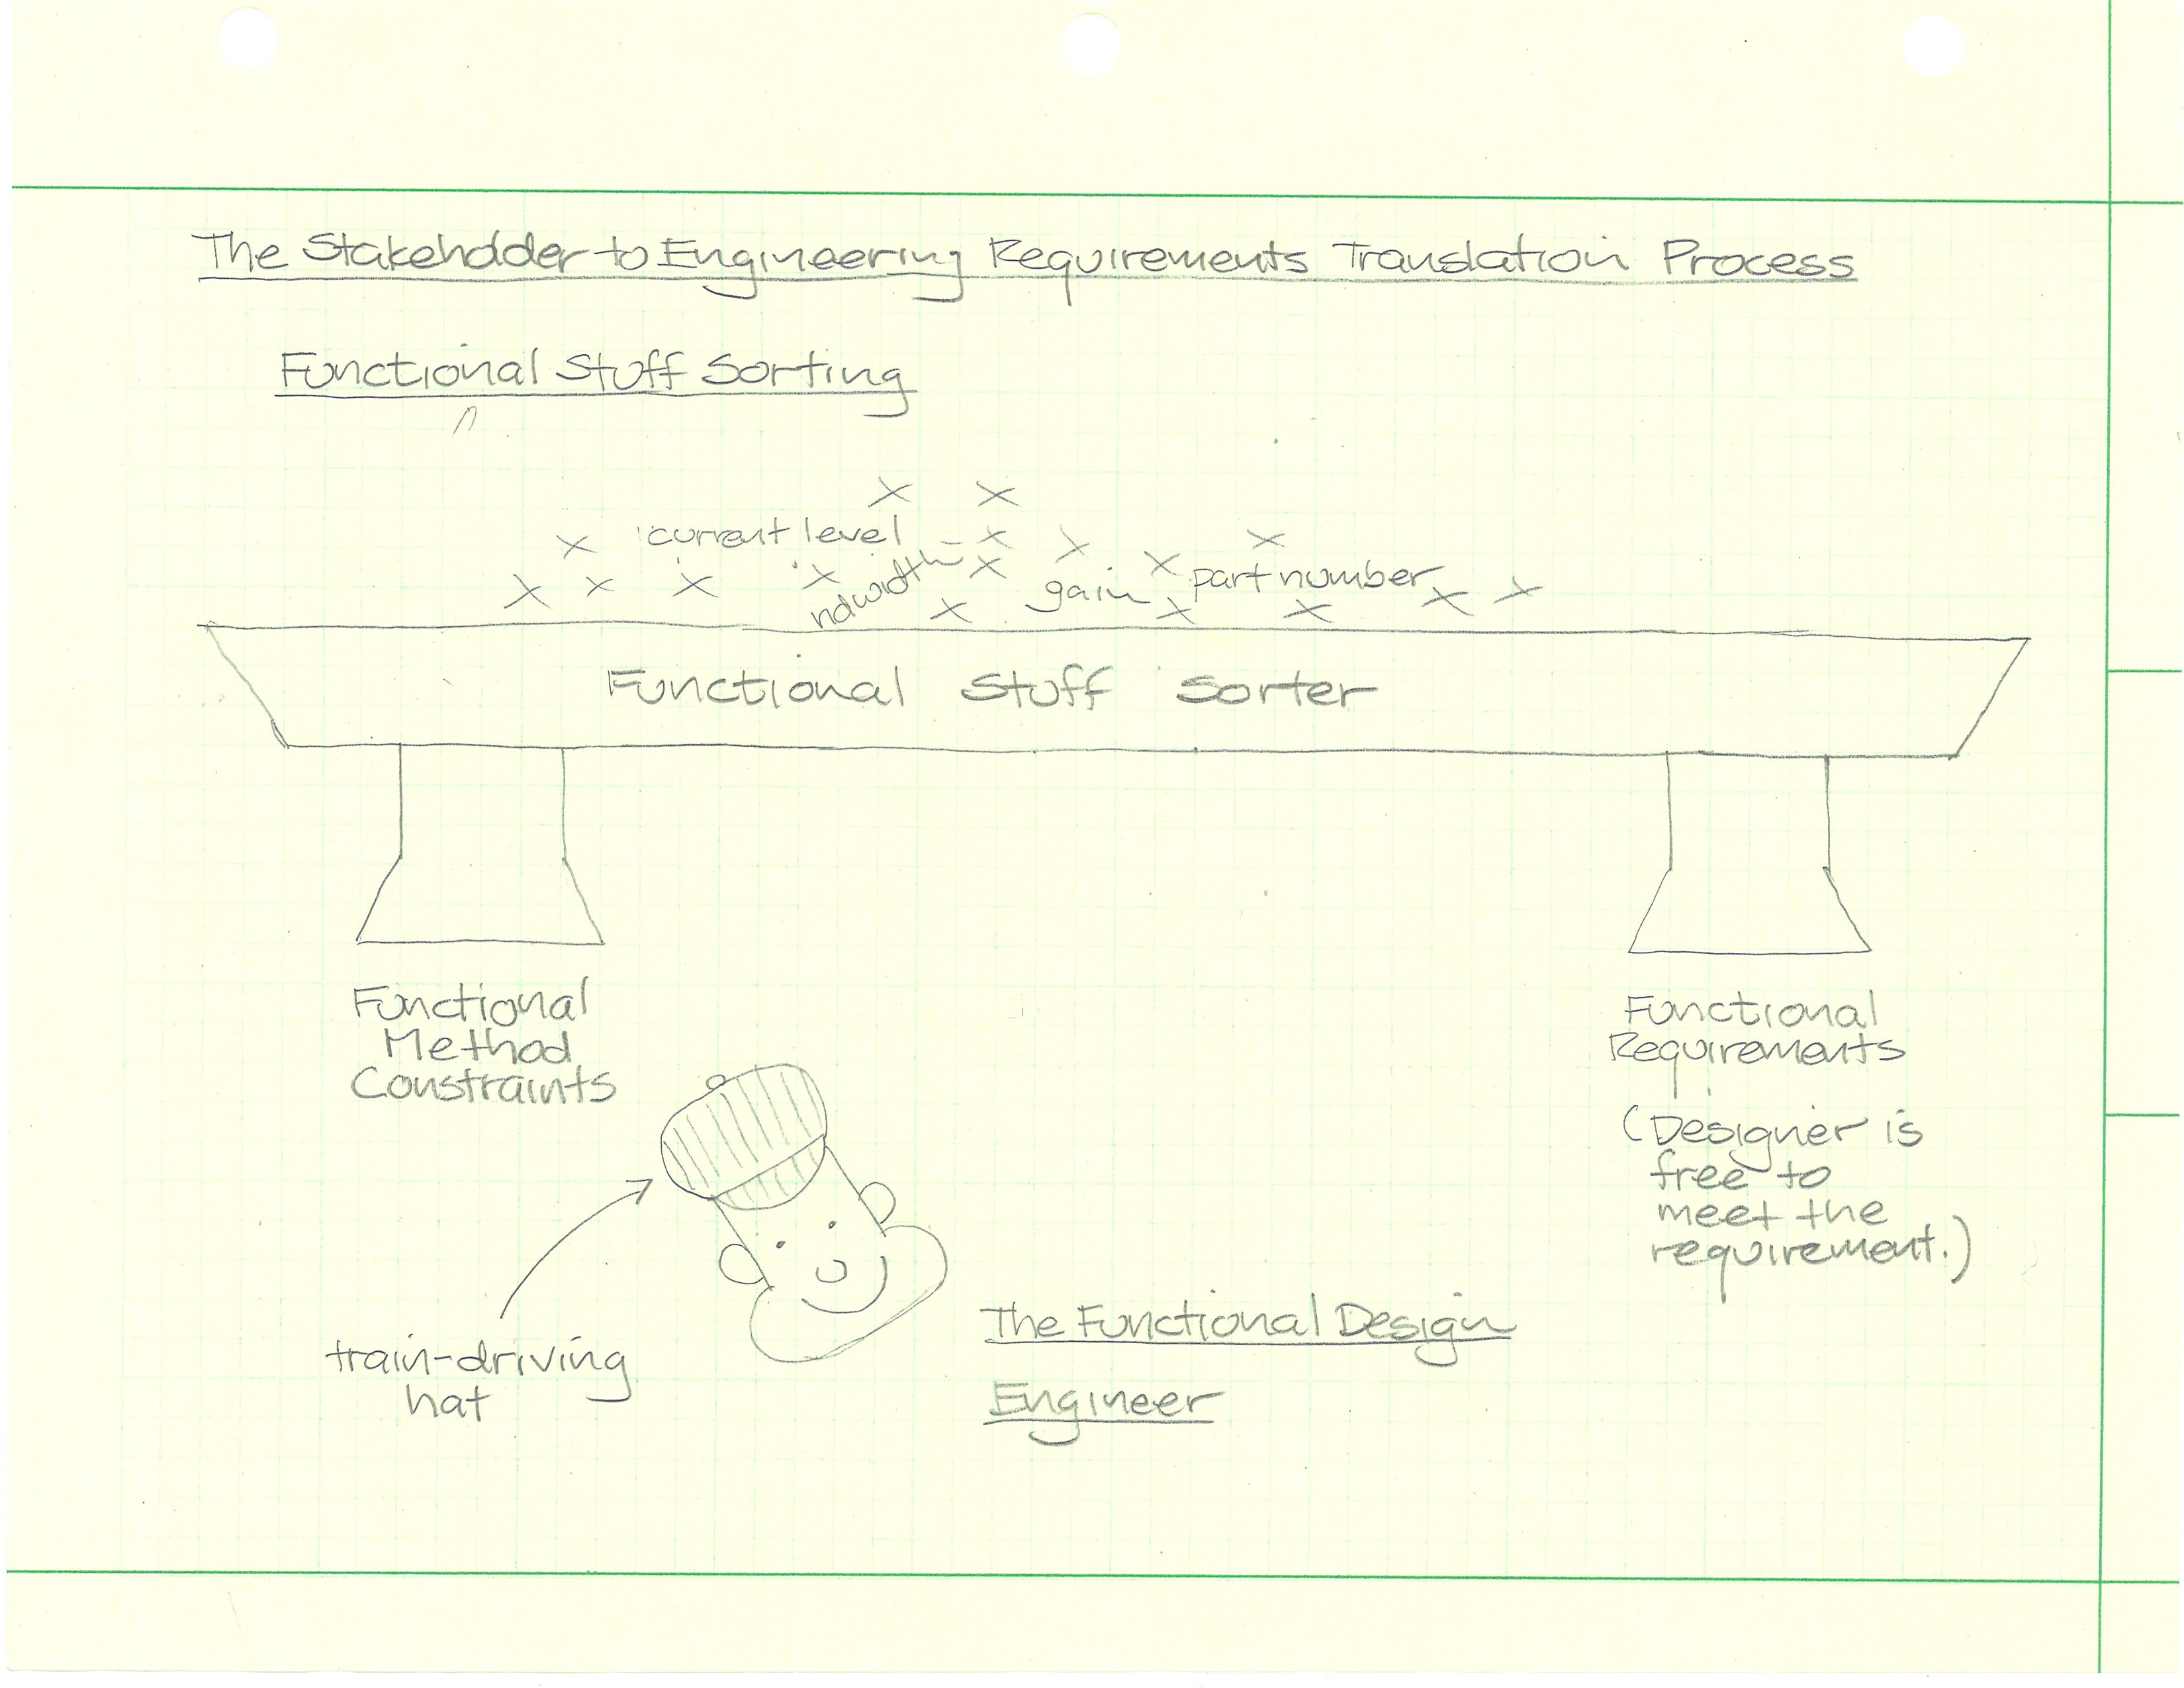 The Stakeholder to Engineering Requirements Translation Process
Functional Stuff Sorting
current level
ndwidth
gain
part number
Functional Stuff Sorter
Functional
Method
Constraints
Functional
Requirements
(Designer is
free to
meet the
requirement.)
train-driving
hat
The Functional Design
Engineer